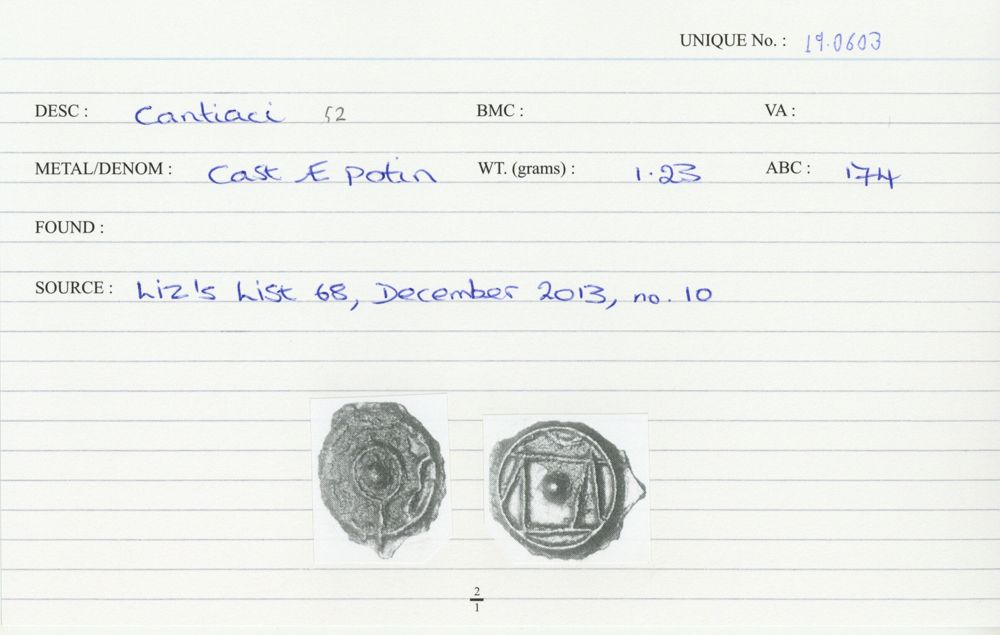 UNIQUE No. : 19.0603
DESC : Cantiaci 52 BMC : VA :
METAL/DENOM : Cast Æ Potin WT. (grams) : 1.23 ABC : 174
FOUND :
SOURCE : Liz's List 68, December 2013, no. 10
2
1